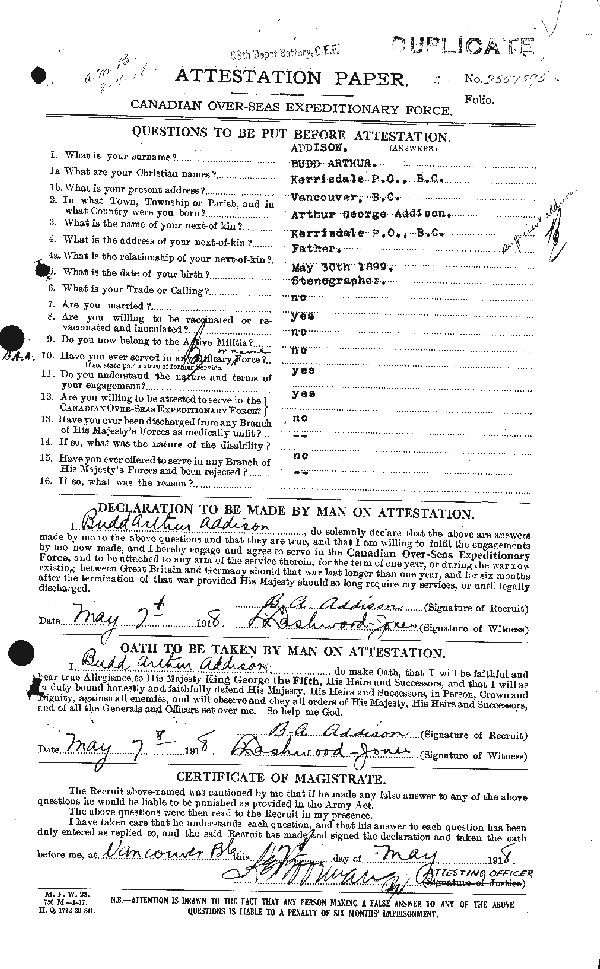 68th Depot Battery, C.E.F.
DUPLICATE
ATTESTATION PAPER.
No.
Folio.
CANADIAN OVER-SEAS EXPEDITIONARY FORCE.
QUESTIONS TO BE PUT BEFORE ATTESTATION.
(ANSWERS)
1. What is your surname? ADDISON.
1a What are your Christian names? BUDD ARTHUR.
1b. What is your present address? Kerrisdale P.O., B.C.
2. In what Town, Township or Parish, and in
what Country were you born? Vancouver, B.C.
3. What is the name of your next-of kin? Arthur George Addison.
4. What is the address of your next-of-kin? Kerrisdale P.O., B.C.
4a. What is the relationship of your next-of-kin? Father.
5. What is the date of your birth? May 30th 1899.
6. What is your Trade or Calling? Stenographer.
7. Are you married? no
8. Are you willing to be vaccinated or re-
vaccinated and inoculated? yes
9. Do you now belong to the Active Militia? no
B.A.A. 10. Have you ever served in any Military Force? no
or naval
If so, state particulars of former Service
11. Do you understand the nature and terms of
your engagement? yes
12. Are you willing to be attested to serve in the
CANADIAN OVER-SEAS EXPEDITIONARY FORCE? yes
13. Have you ever been discharged from any Branch
of His Majesty's Forces as medically unfit? no
14. If so, what was the nature of the disability? --
15. Have you ever offered to serve in any Branch of
His Majesty's Forces and been rejected? no
16. If so, what was the reason? --
DECLARATION TO BE MADE BY MAN ON ATTESTATION.
I, Budd Arthur Addison, do solemnly declare that the above are answers
made by me to the above questions and that they are true, and that I am willing to fulfil the engagements
by me now made, and I hereby engage and agree to serve in the Canadian Over-Seas Expeditionary
Force, and to be attached to any arm of the service therein, for the term of one year, or during the war now
existing between Great Britain and Germany should that war last longer than one year, and for six months
after the termination of that war provided His Majesty should so long require my services, or until legally
discharged.
B. A. Addison (Signature of Recruit)
Date May 7th 1918 Dashwood-Jones (Signature of Witness)
OATH TO BE TAKEN BY MAN ON ATTESTATION.
I, Budd Arthur Addison, do make Oath, that I will be faithful and
bear true Allegiance to His Majesty King George the Fifth, His Heirs and Successors, and that I will as
in duty bound honestly and faithfully defend His Majesty, His Heirs and Successors, in Person, Crown and
Dignity, against all enemies, and will observe and obey all orders of His Majesty, His Heirs and Successors,
and of all the Generals and Officers set over me. So help me God.
B. A. Addison (Signature of Recruit)
Date May 7th 1918 Dashwood-Jones (Signature of Witness)
CERTIFICATE OF MAGISTRATE.
The Recruit above-named was cautioned by me that if he made any false answer to any of the above
questions he would be liable to be punished as provided in the Army Act.
The above questions were then read to the Recruit in my presence.
I have taken care that he understands each question, and that his answer to each question has been
duly entered as replied to, and the said Recruit has made and signed the declaration and taken the oath
before me, at Vancouver BC this 7th day of May 1918
ATTESTING OFFICER
(Signature of Justice)
M. F. W. 23.
H. Q. 1772 39 841.
N.B.—ATTENTION IS DRAWN TO THE FACT THAT ANY PERSON MAKING A FALSE ANSWER TO ANY OF THE ABOVE
QUESTIONS IS LIABLE TO A PENALTY OF SIX MONTHS' IMPRISONMENT.